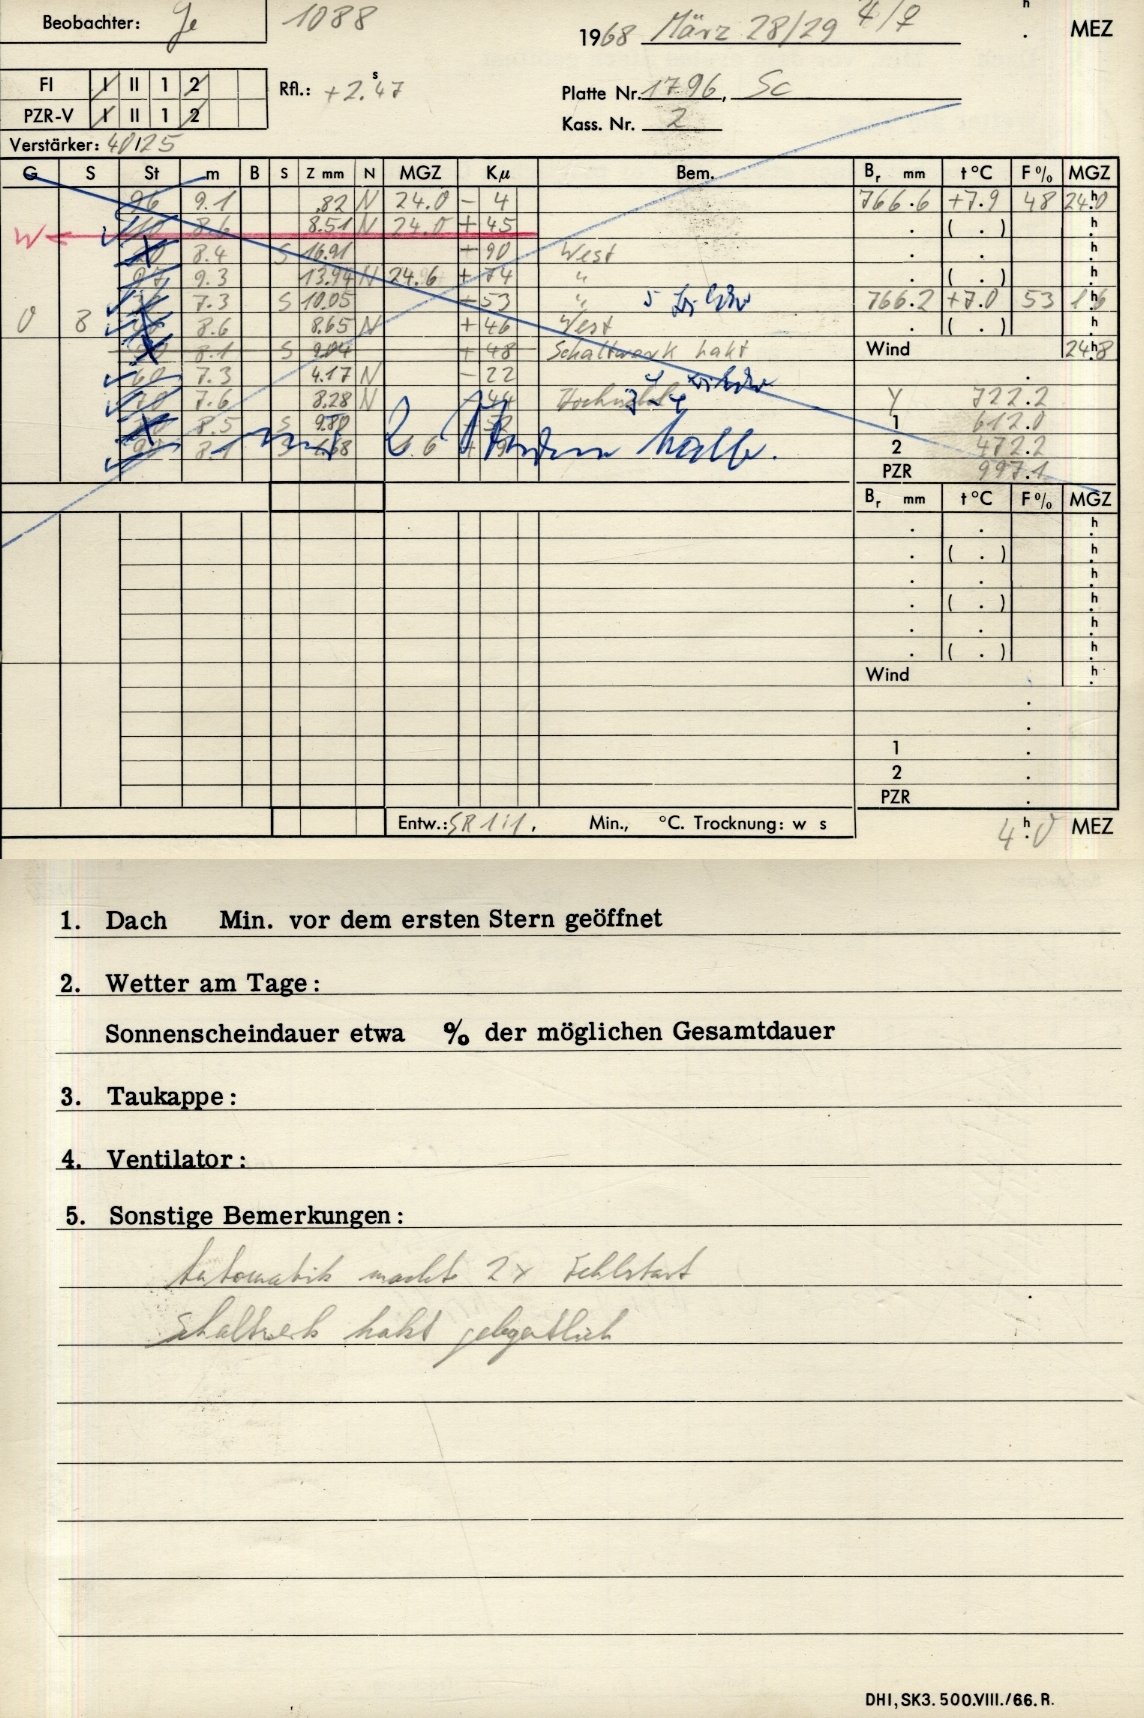 Beobachter: Je 1088 1968 März 28/29 4/♀ h . MEZ
FI I II 1 2 Rfl.: +2.ˢ47 Platte Nr. 1796, Sc
PZR-V I II 1 2 Kass. Nr. 2
Verstärker: 40/25
G S St m B S Z mm N MGZ Kμ Bem. Br mm t °C F % MGZ
96 9.1 .82 N 24.0 - 4 766.6 +7.9 48 24.ʰ0
W 8.6 8.51 N 24.0 + 45 . ( . ) h
8.4 S 16.91 - 90 West . . h
9.3 13.94 N 24.6 + 74 " . ( . ) h
7.3 S 10.05 + 53 " 766.2 +7.0 53 1.ʰ6
0 8 8.6 8.65 N + 46 West . ( . ) h
8.1 S 9.04 + 48 Schaltwerk hakt Wind 24.ʰ8
60 7.3 4.17 N - 22 .
70 7.6 8.28 N 44 Y 722.2
8.5 S 9.80 52 1 612.0
8.1 S .68 6.6 2 472.2
PZR 997.1
Br mm t °C F % MGZ
. . h
. ( . ) h
. . h
. ( . ) h
. . h
. ( . ) h
Wind h
.
.
1 .
2 .
PZR .
Entw.: SR 1:1. Min., °C. Trocknung: w s 4.ʰ0 MEZ
1. Dach Min. vor dem ersten Stern geöffnet
2. Wetter am Tage:
Sonnenscheindauer etwa % der möglichen Gesamtdauer
3. Taukappe:
4. Ventilator:
5. Sonstige Bemerkungen:
Automatik macht 2x Fehlstart
Schaltwerk hakt gelegentlich
DHI, SK3. 500.VIII./66. R.